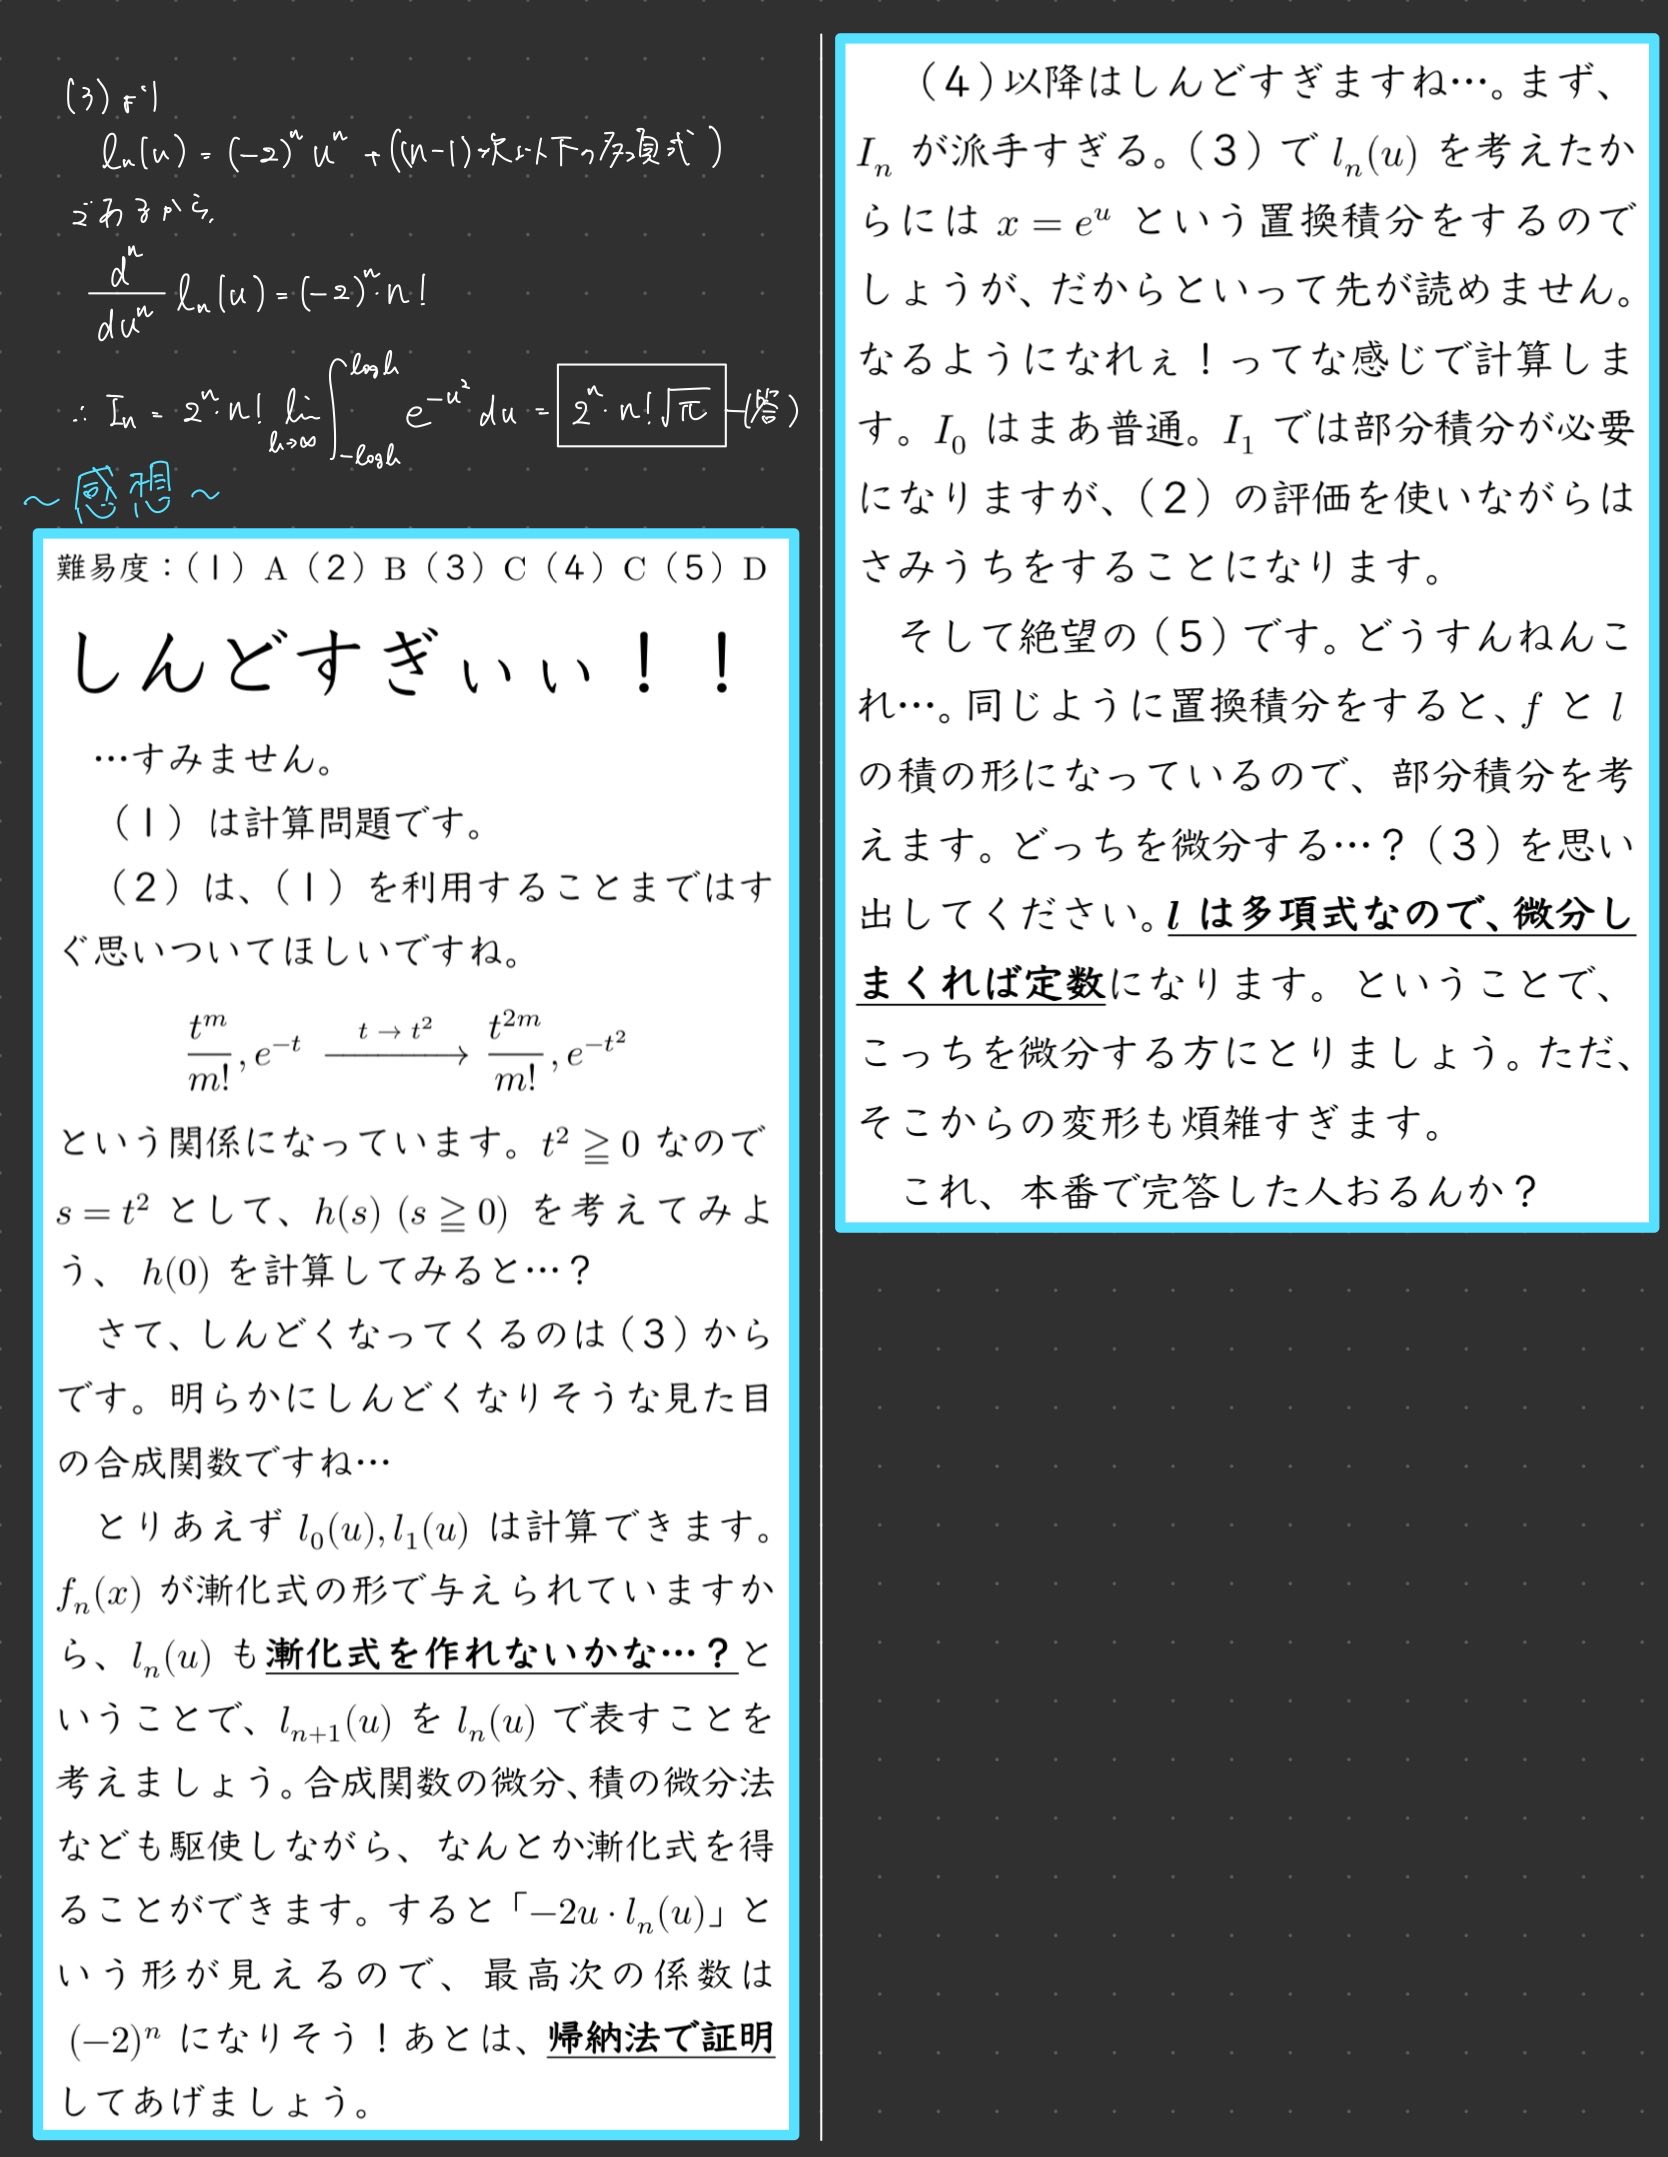 (3)より
lₙ(u) = (-2)ⁿ uⁿ + ((n-1)次以下の多項式)
であるから、
dⁿ/duⁿ lₙ(u) = (-2)ⁿ・n!
∴ Iₙ = 2ⁿ・n! lim_{h→∞} ∫_{-log h}^{log h} e^{-u²} du = 2ⁿ・n!√π -(答)
～感想～
難易度：（1）A（2）B（3）C（4）C（5）D
しんどすぎぃぃ！！
…すみません。
（1）は計算問題です。
（2）は、（1）を利用することまではす
ぐ思いついてほしいですね。
t^m/m!, e^{-t} --t→t²--> t^{2m}/m!, e^{-t²}
という関係になっています。t² ≧ 0 なので
s = t² として、h(s) (s ≧ 0) を考えてみよ
う、 h(0) を計算してみると…？
さて、しんどくなってくるのは（3）から
です。明らかにしんどくなりそうな見た目
の合成関数ですね…
とりあえず l₀(u), l₁(u) は計算できます。
fₙ(x) が漸化式の形で与えられていますか
ら、lₙ(u) も漸化式を作れないかな…？と
いうことで、lₙ₊₁(u) を lₙ(u) で表すことを
考えましょう。合成関数の微分、積の微分法
なども駆使しながら、なんとか漸化式を得
ることができます。すると「−2u · lₙ(u)」と
いう形が見えるので、最高次の係数は
(−2)ⁿ になりそう！あとは、帰納法で証明
してあげましょう。
（4）以降はしんどすぎますね…。まず、
Iₙ が派手すぎる。（3）で lₙ(u) を考えたか
らには x = e^u という置換積分をするので
しょうが、だからといって先が読めません。
なるようになれぇ！ってな感じで計算しま
す。I₀ はまあ普通。I₁ では部分積分が必要
になりますが、（2）の評価を使いながらは
さみうちをすることになります。
そして絶望の（5）です。どうすんねんこ
れ…。同じように置換積分をすると、f と l
の積の形になっているので、部分積分を考
えます。どっちを微分する…？（3）を思い
出してください。l は多項式なので、微分し
まくれば定数になります。ということで、
こっちを微分する方にとりましょう。ただ、
そこからの変形も煩雑すぎます。
これ、本番で完答した人おるんか？